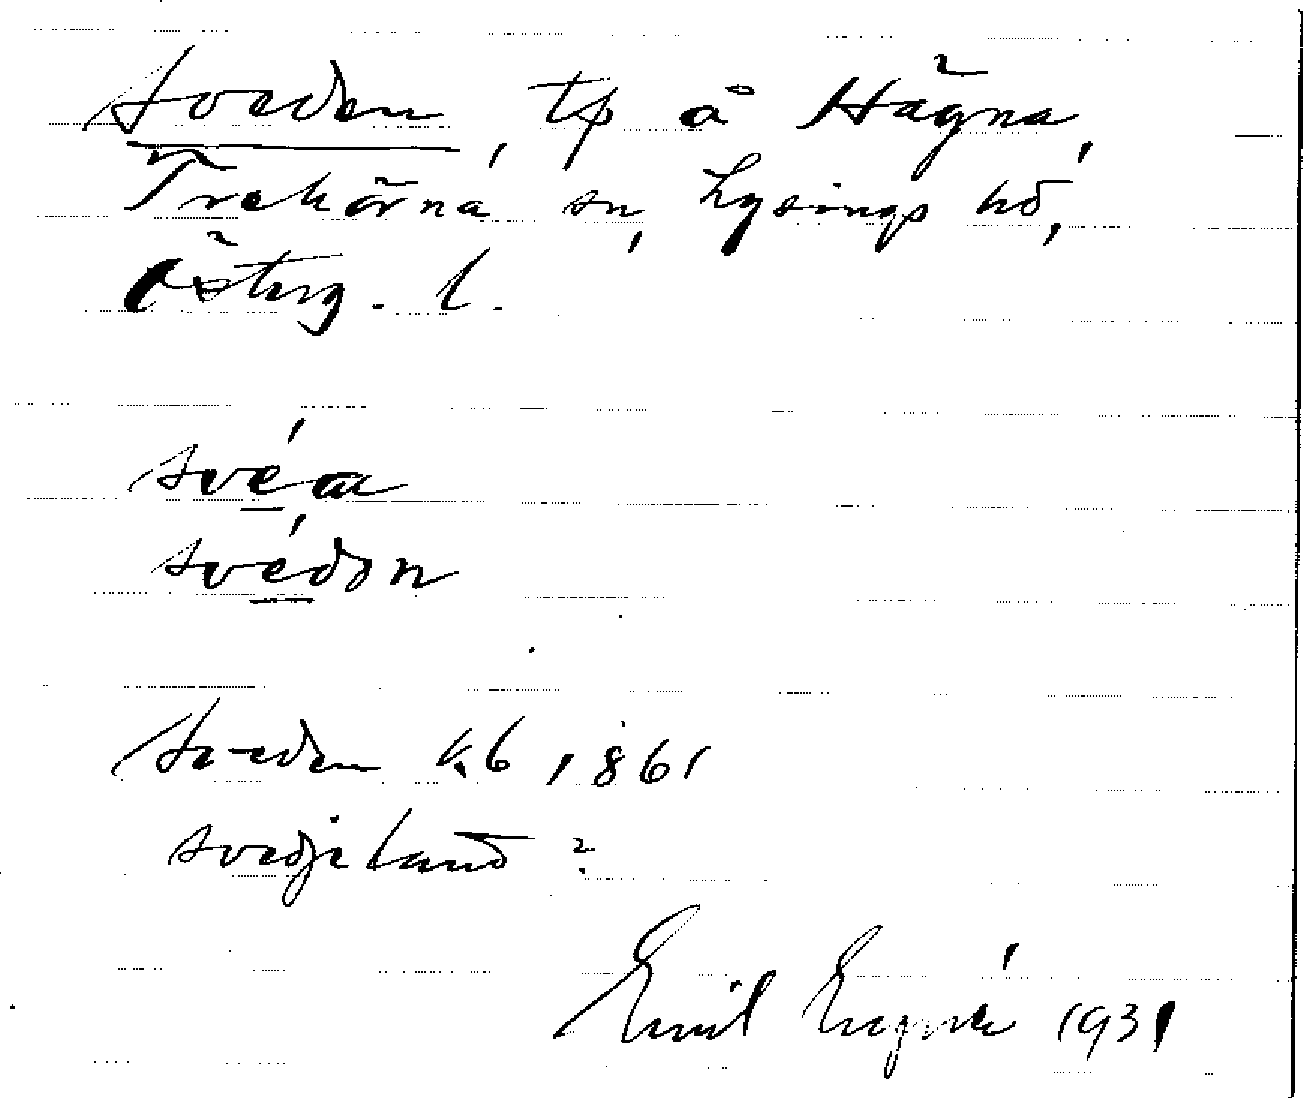 Sveden, tp å Hägna,
Trehörna sn, Lysings hd,
Österg. l.
svéa
svédən
Sveden kb 1861
svedjeland?
Emil Engné 1931